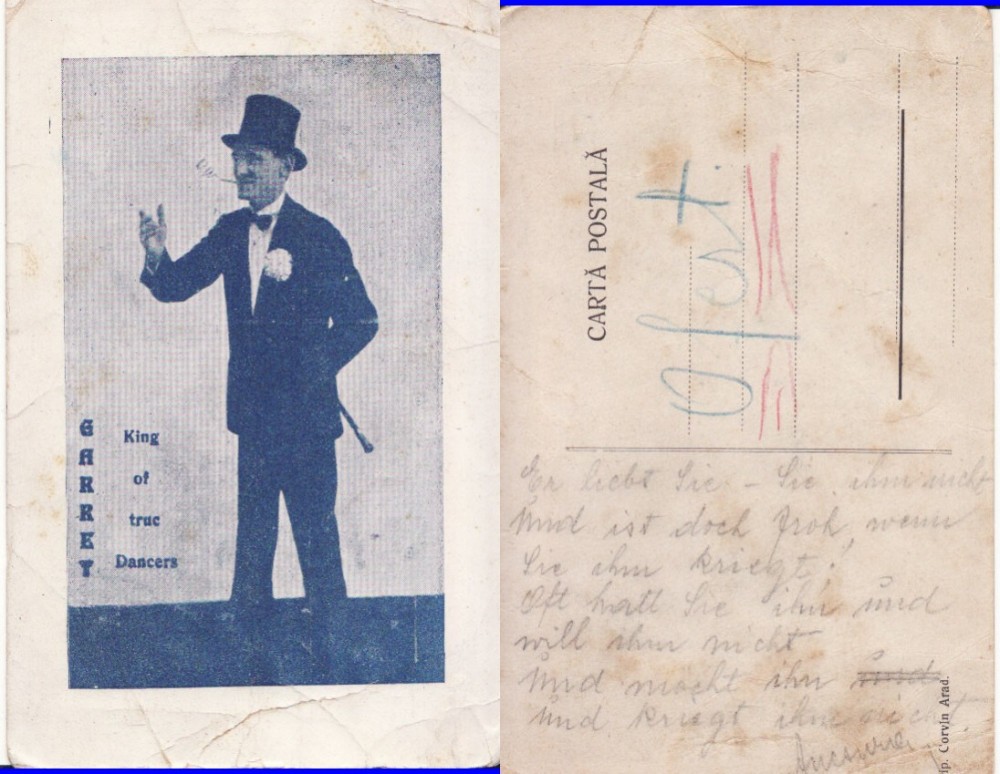 GARRET
King
of
true
Dancers
CARTĂ POSTALĂ
Ofert.
Er liebt Sie - Sie ihm nicht
Und ist doch froh, wenn
Sie ihm kriegt!
Oft hatt Sie ihn und
will ihm nicht
Und möcht ihn und
und kriegt ihm nicht.
Tip. Corvin Arad.